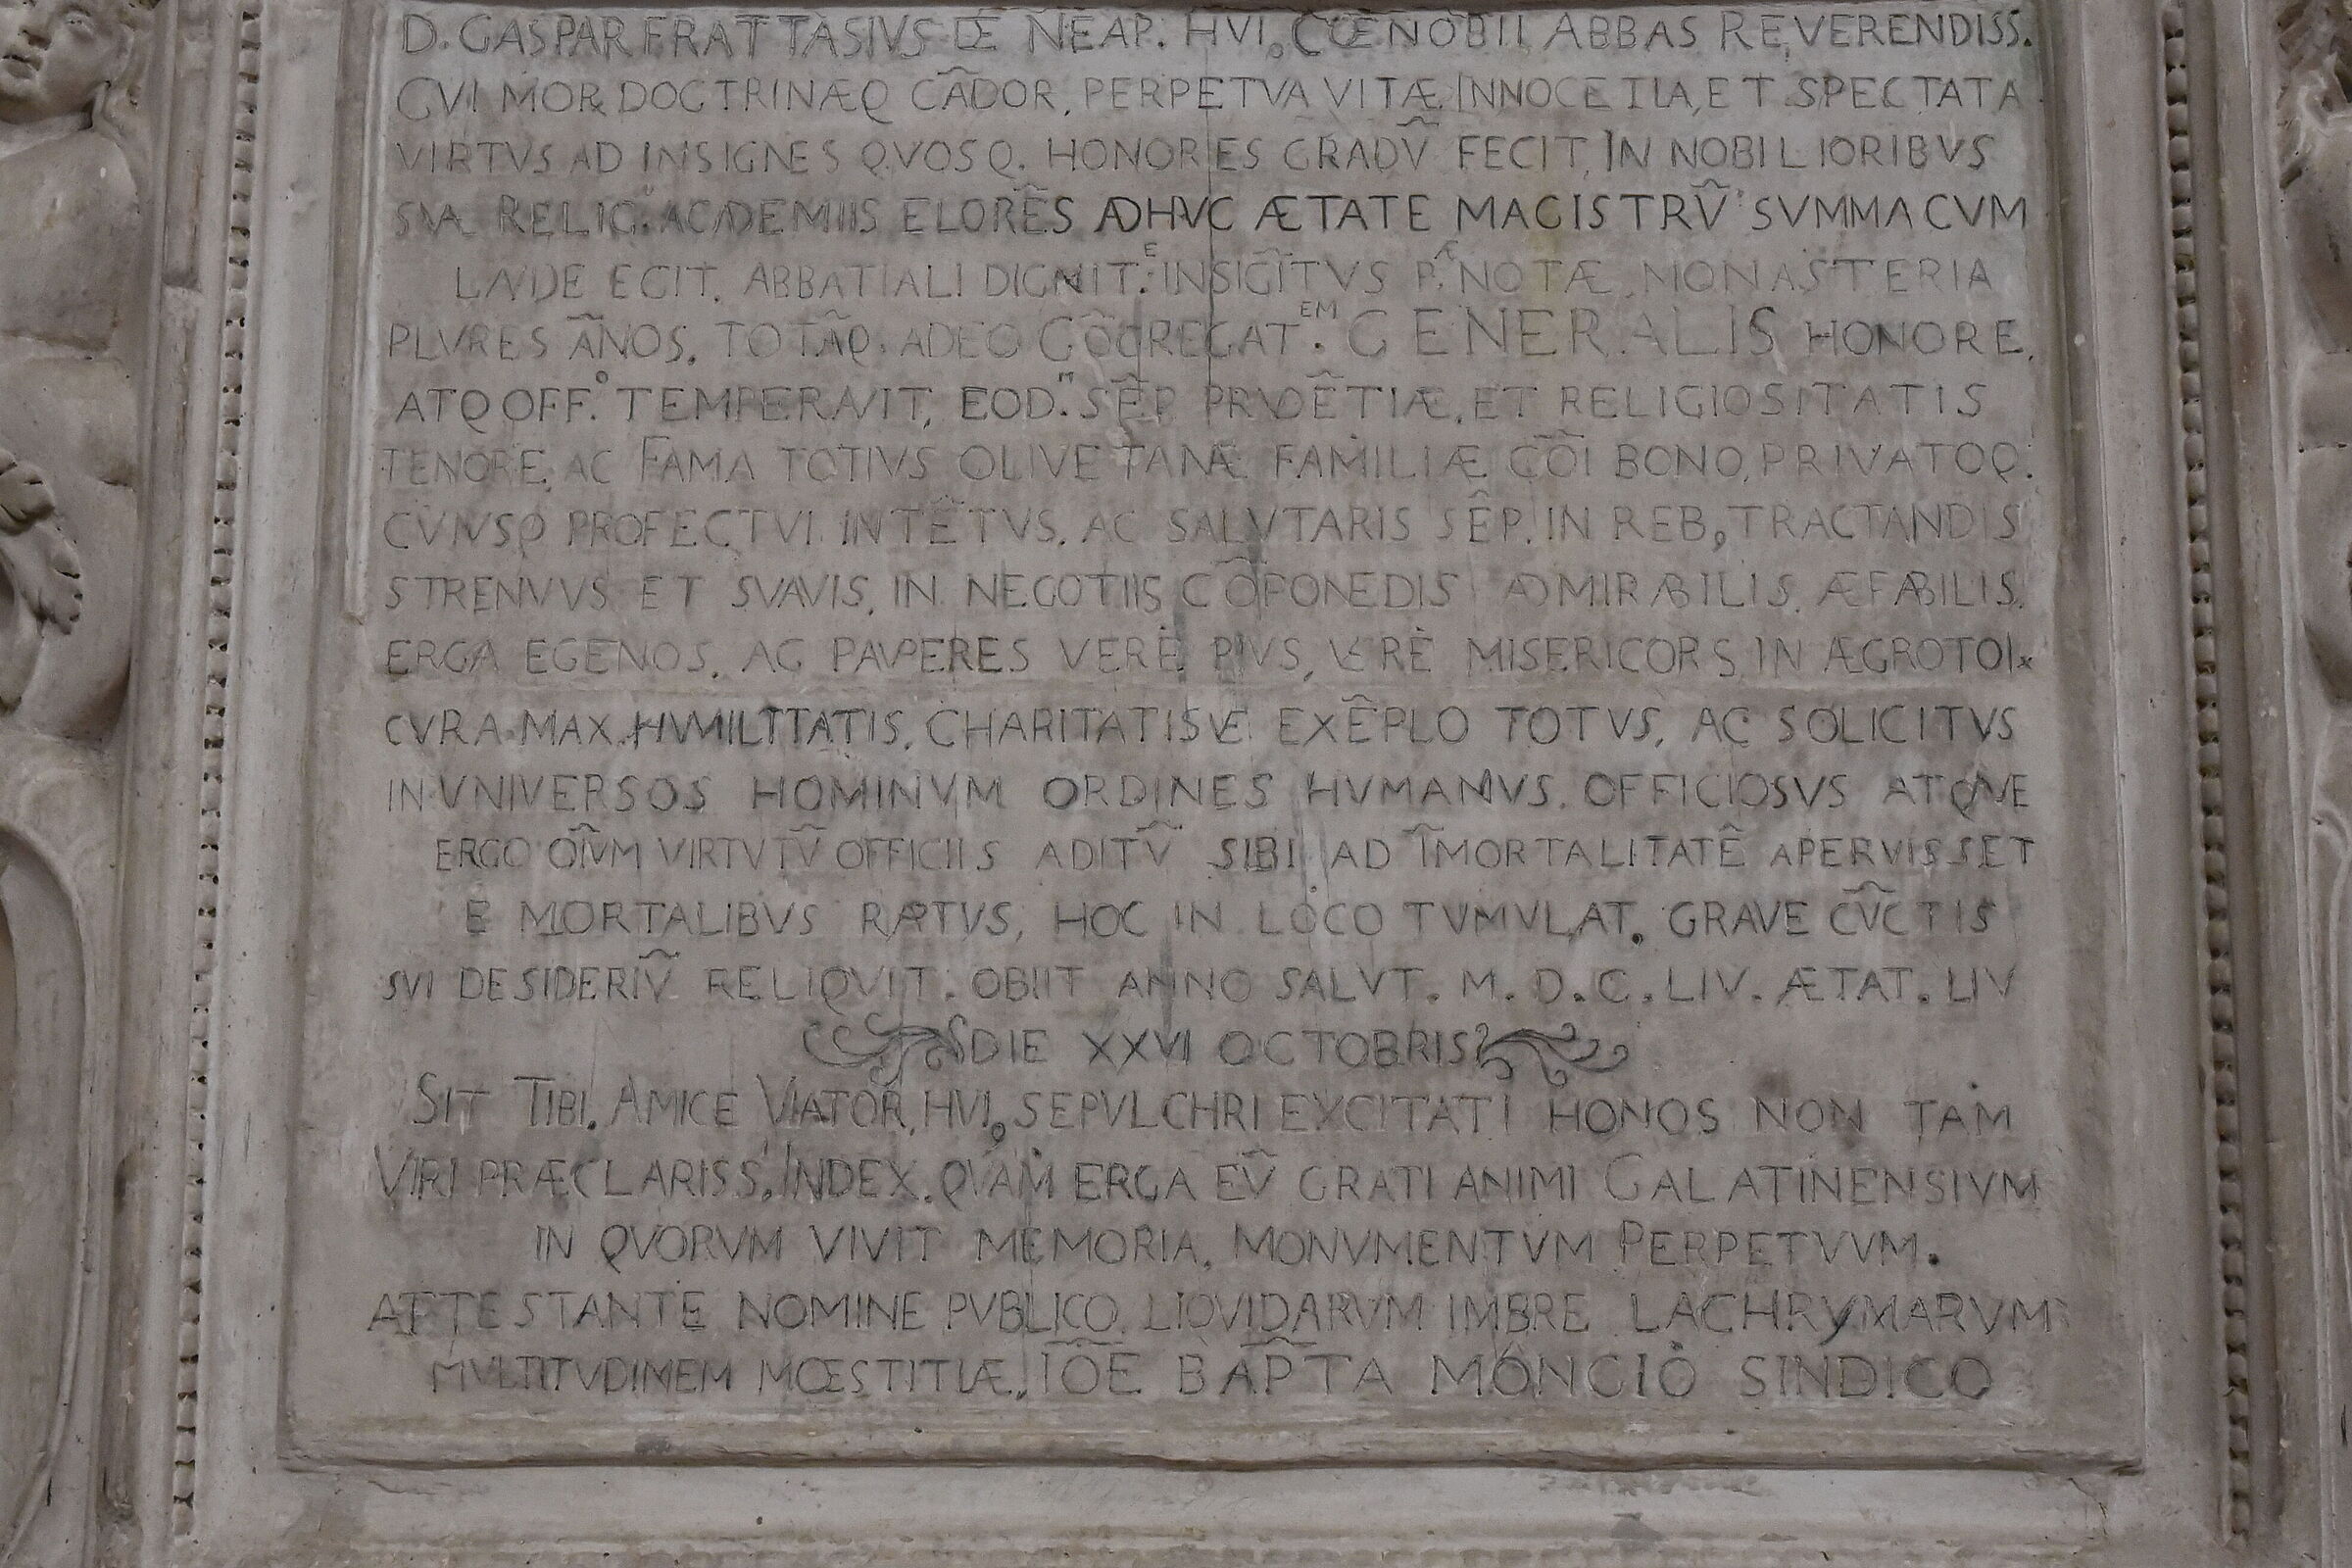 D. GASPAR FRATTASIVS DE NEAP. HVI₉ CŒNOBII ABBAS REVERENDISS.
CVI MOR. DOCTRINÆQ CÃDOR, PERPETVA VITÆ INNOCETIA, ET SPECTATA
VIRTVS AD INSIGNES QVOSQ. HONORES GRADŨ FECIT, IN NOBILIORIBVS
SVA RELIG. ACADEMIIS FLORẼS ADHVC ÆTATE MAGISTRŨ SVMMA CVM
LAVDE EGIT. ABBATIALI DIGNIT.E INSIGĨTVS P.Æ NOTÆ MONASTERIA
PLVRES ÃNOS. TOTÃQ. ADEO CÕGREGAT.EM GENERALIS HONORE,
ATQ OFF.O TEMPERAVIT, EOD.M SẼP PRVDẼTIÆ, ET RELIGIOSITATIS
TENORE, AC FAMA TOTIVS OLIVETANÆ FAMILIÆ CÕI BONO, PRIVATOQ:
CVIVSQ PROFECTVI INTẼTVS. AC SALVTARIS SẼP. IN REB₉ TRACTANDIS
STRENVVS ET SVAVIS, IN NEGOTIIS CÕPONEDIS ADMIRABILIS. ÆFABILIS.
ERGA EGENOS, AC PAVPERES VERÈ PIVS, VERÈ MISERICORS, IN ÆGROTOꝜ
CVRA MAX. HVMILITATIS, CHARITATISVE EXẼPLO TOTVS, AC SOLICITVS
IN VNIVERSOS HOMINVM ORDINES HVMANVS. OFFICIOSVS ATQVE
ERGO OĨVM VIRTVTŨ OFFICIIS ADITŨ SIBI AD ĨMORTALITATẼ APERVISSET
E MORTALIBVS RAPTVS, HOC IN LOCO TVMVLAT. GRAVE CŨCTIS
SVI DESIDERIŨ RELIQVIT. OBIIT ANNO SALVT. M. D. C. LIV. ÆTAT. LIV
DIE XXVI OCTOBRIS
SIT TIBI, AMICE VIATOR, HVI₉ SEPVLCHRI EXCITATI HONOS NON TAM
VIRI PRÆCLARISS.I INDEX. QVAM ERGA EŨ GRATI ANIMI GALATINENSIVM
IN QVORVM VIVIT MEMORIA, MONVMENTVM PERPETVVM.
ATTESTANTE NOMINE PVBLICO LIQVIDARVM IMBRE LACHRYMARVM
MVLTITVDINEM MŒSTITIÆ, IÕE BAP̃TA MONGIÒ SINDICO